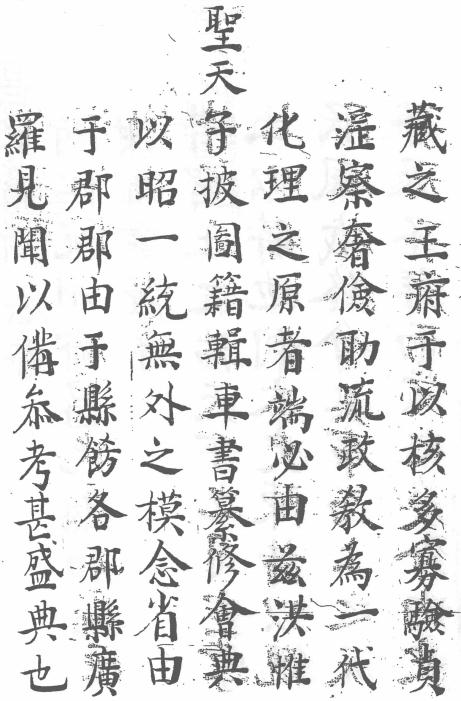 藏之王府于以核多寡驗貞
滛察奢儉助流政敎為一代
化理之原者端必由兹洪惟
聖天子披圖籍輯車書纂修會典
以昭一統無外之模念省由
于郡郡由于縣飭各郡縣廣
羅見聞以俻叅考甚盛典也